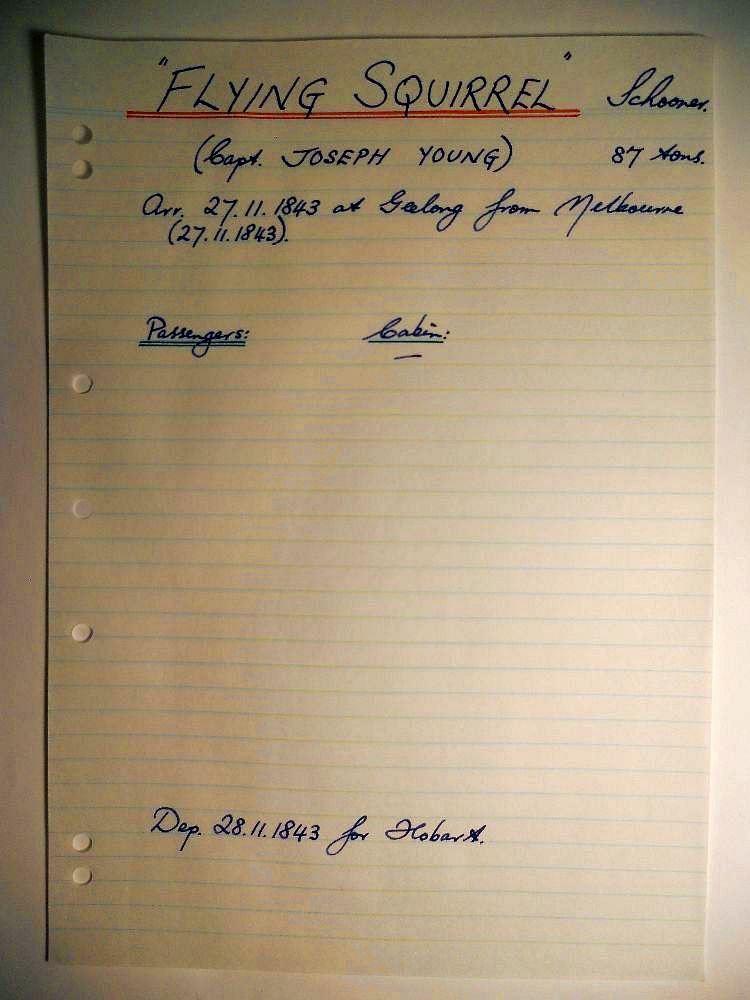 "FLYING SQUIRREL" Schooner.
(Capt. JOSEPH YOUNG) 87 tons.
Arr. 27.11.1843 at Geelong from Melbourne
(27.11.1843).
Passengers: Cabin:
—
Dep. 28.11.1843 for Hobart.